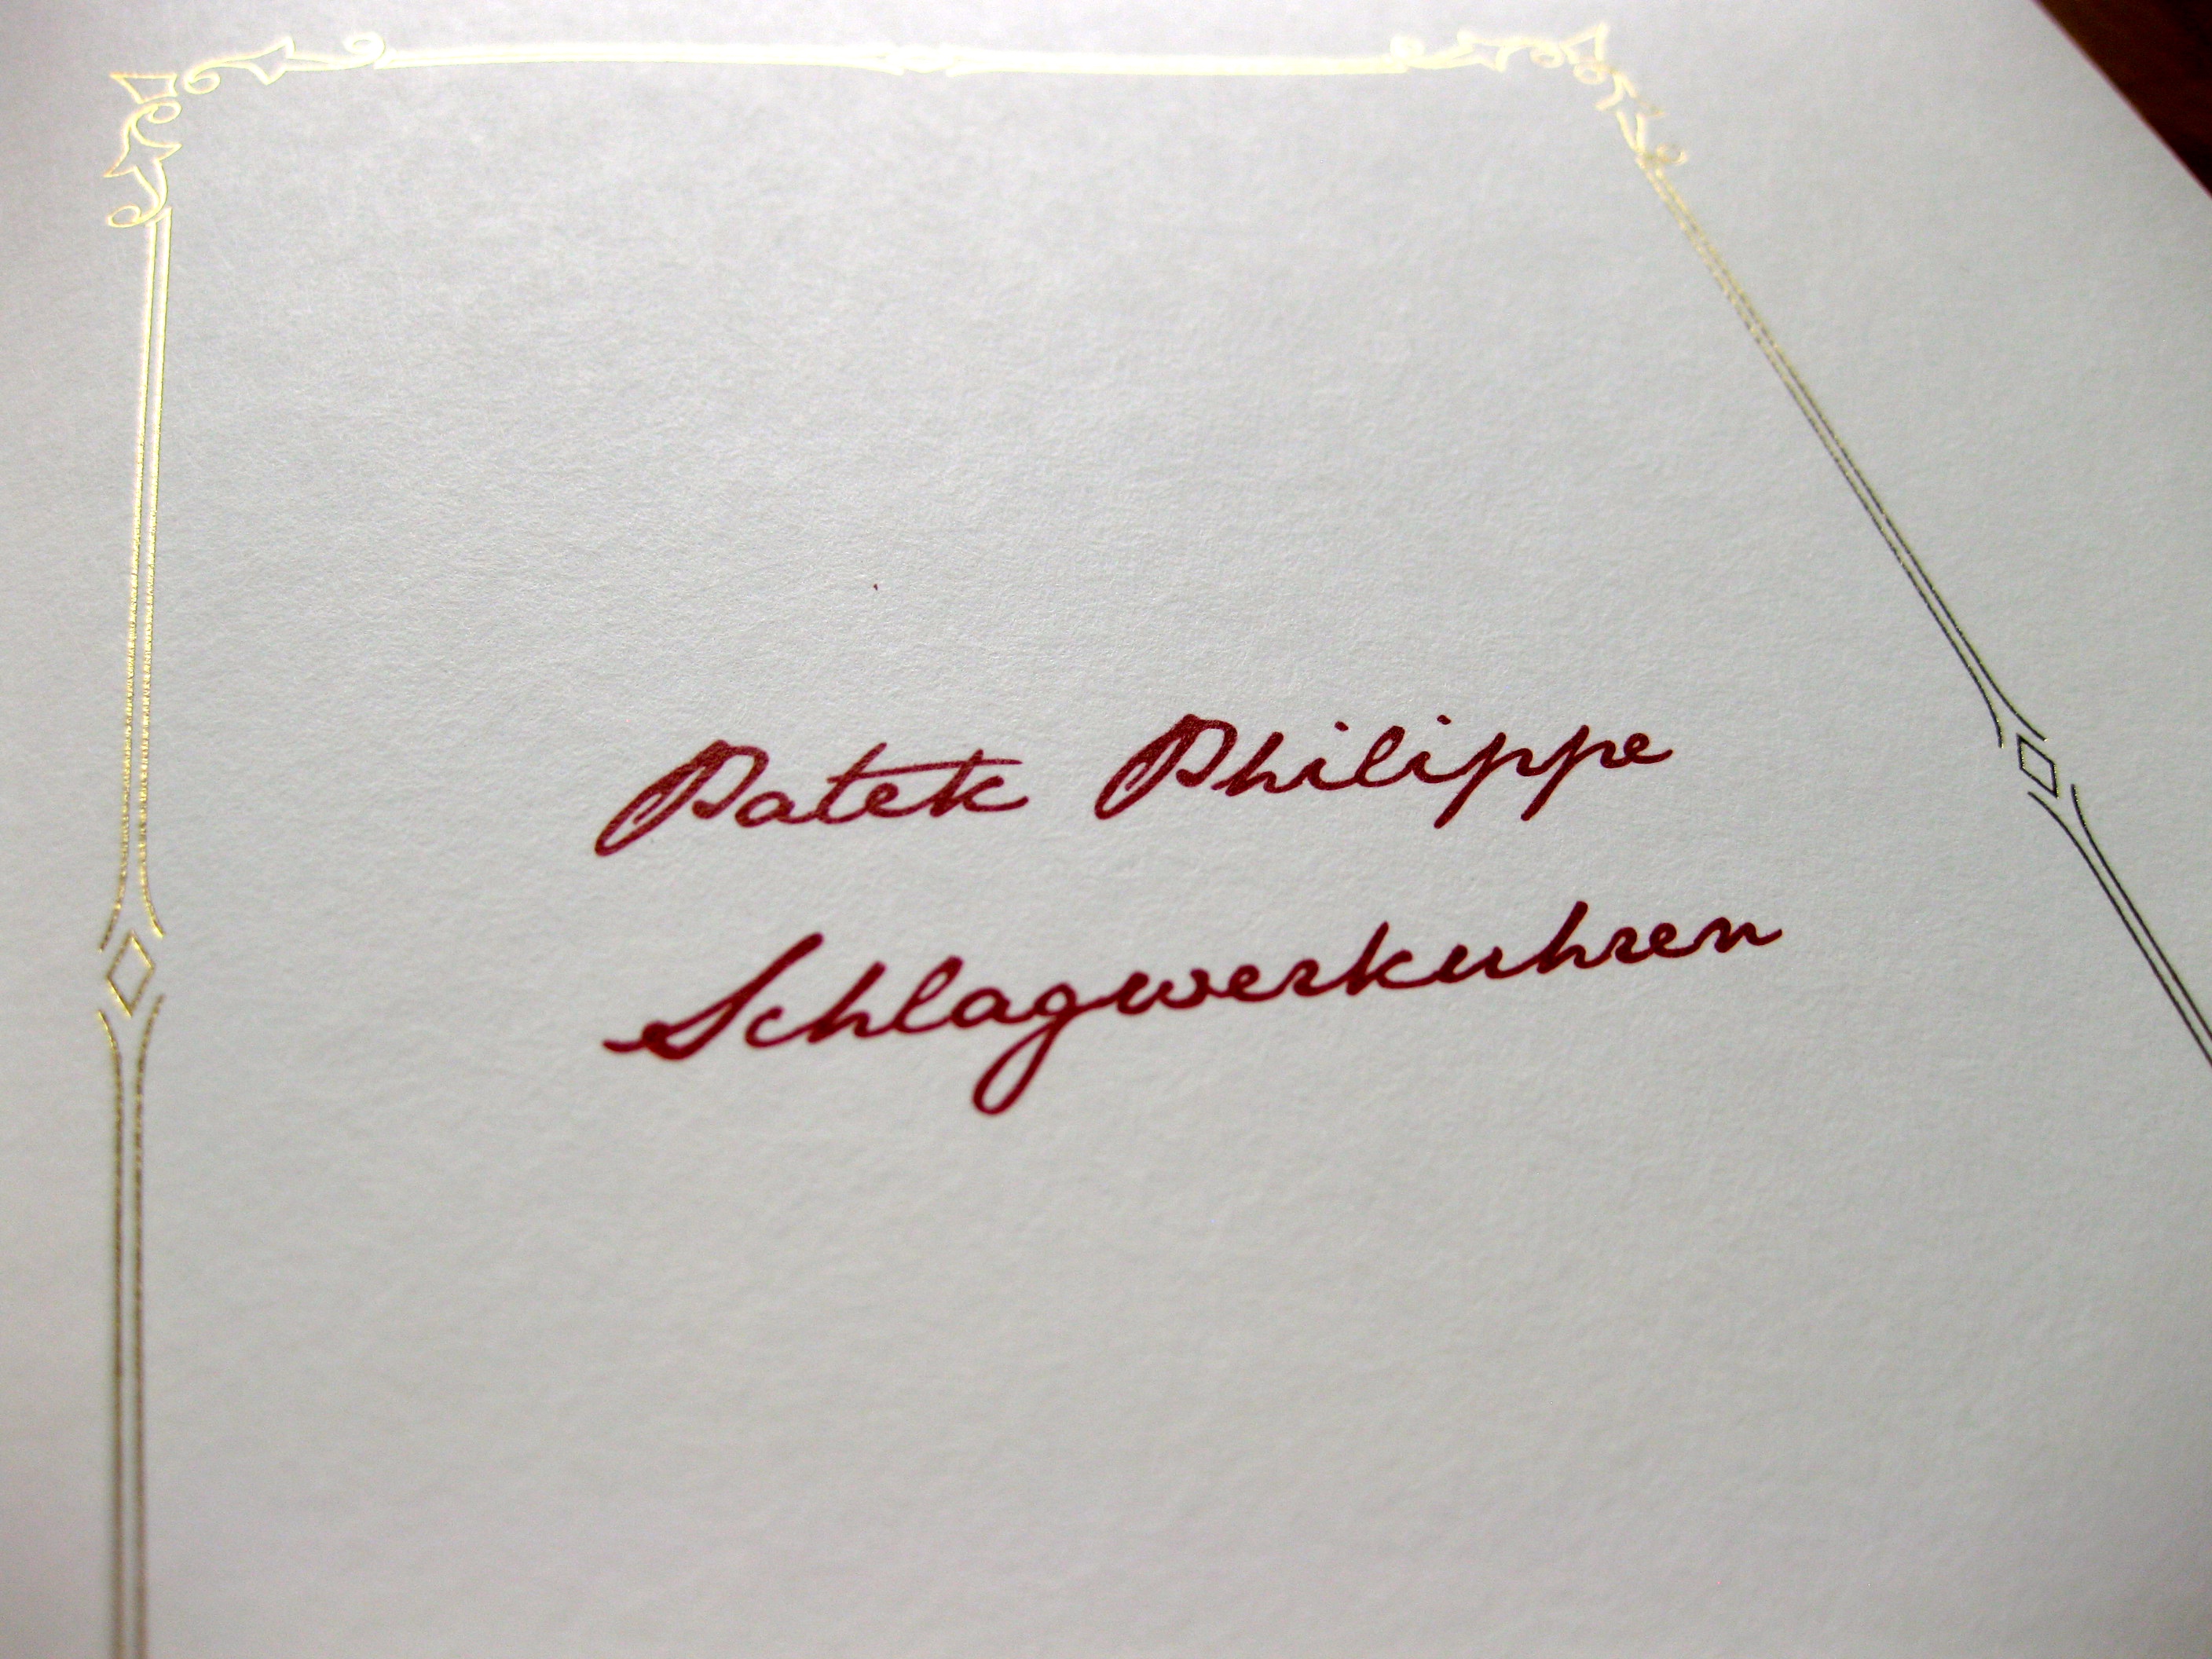 Patek Philippe
Schlagwerkuhren